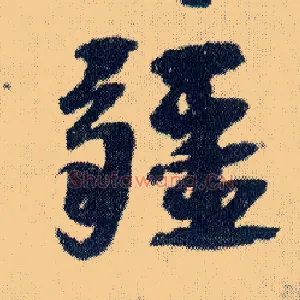 疆
Shufawang.CN